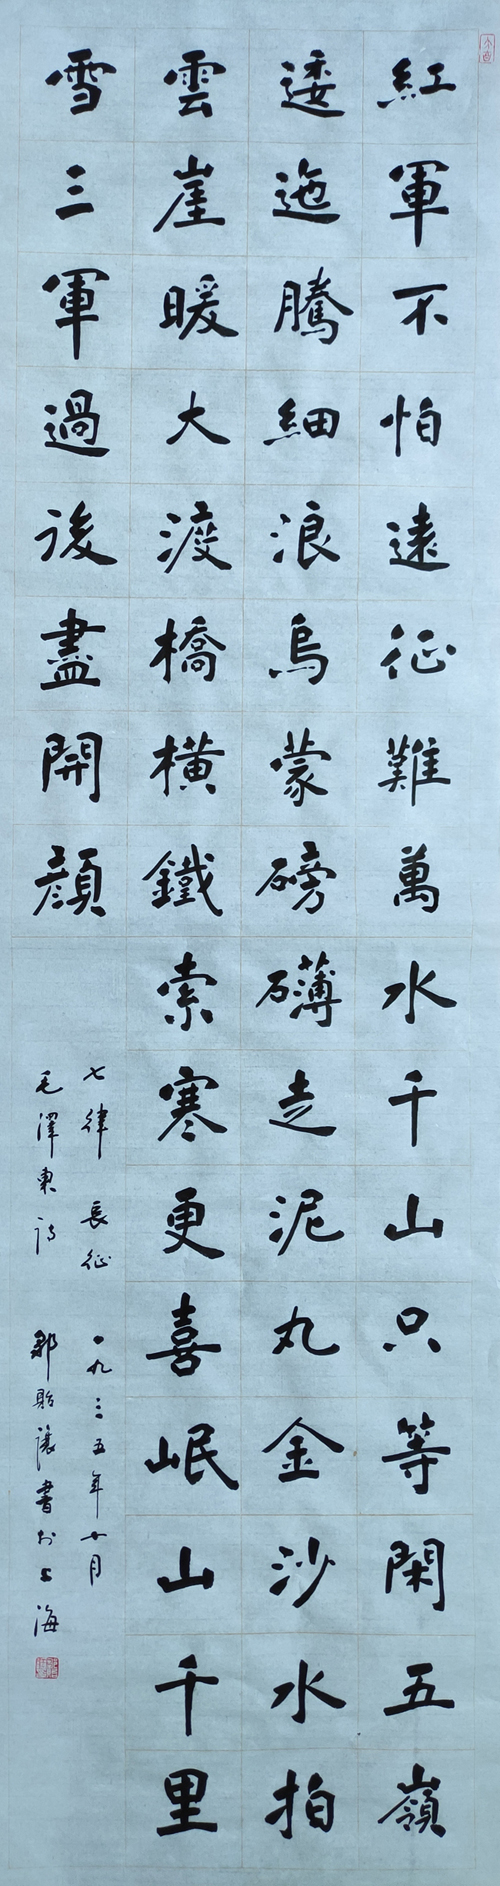 紅軍不怕遠征難萬水千山只等閑五嶺
逶迤騰細浪烏蒙磅礴走泥丸金沙水拍
雲崖暖大渡橋橫鐵索寒更喜岷山千里
雪三軍過後盡開顏
七律 長征 一九三五年十月
毛澤東詩 鄒貽讓書於上海